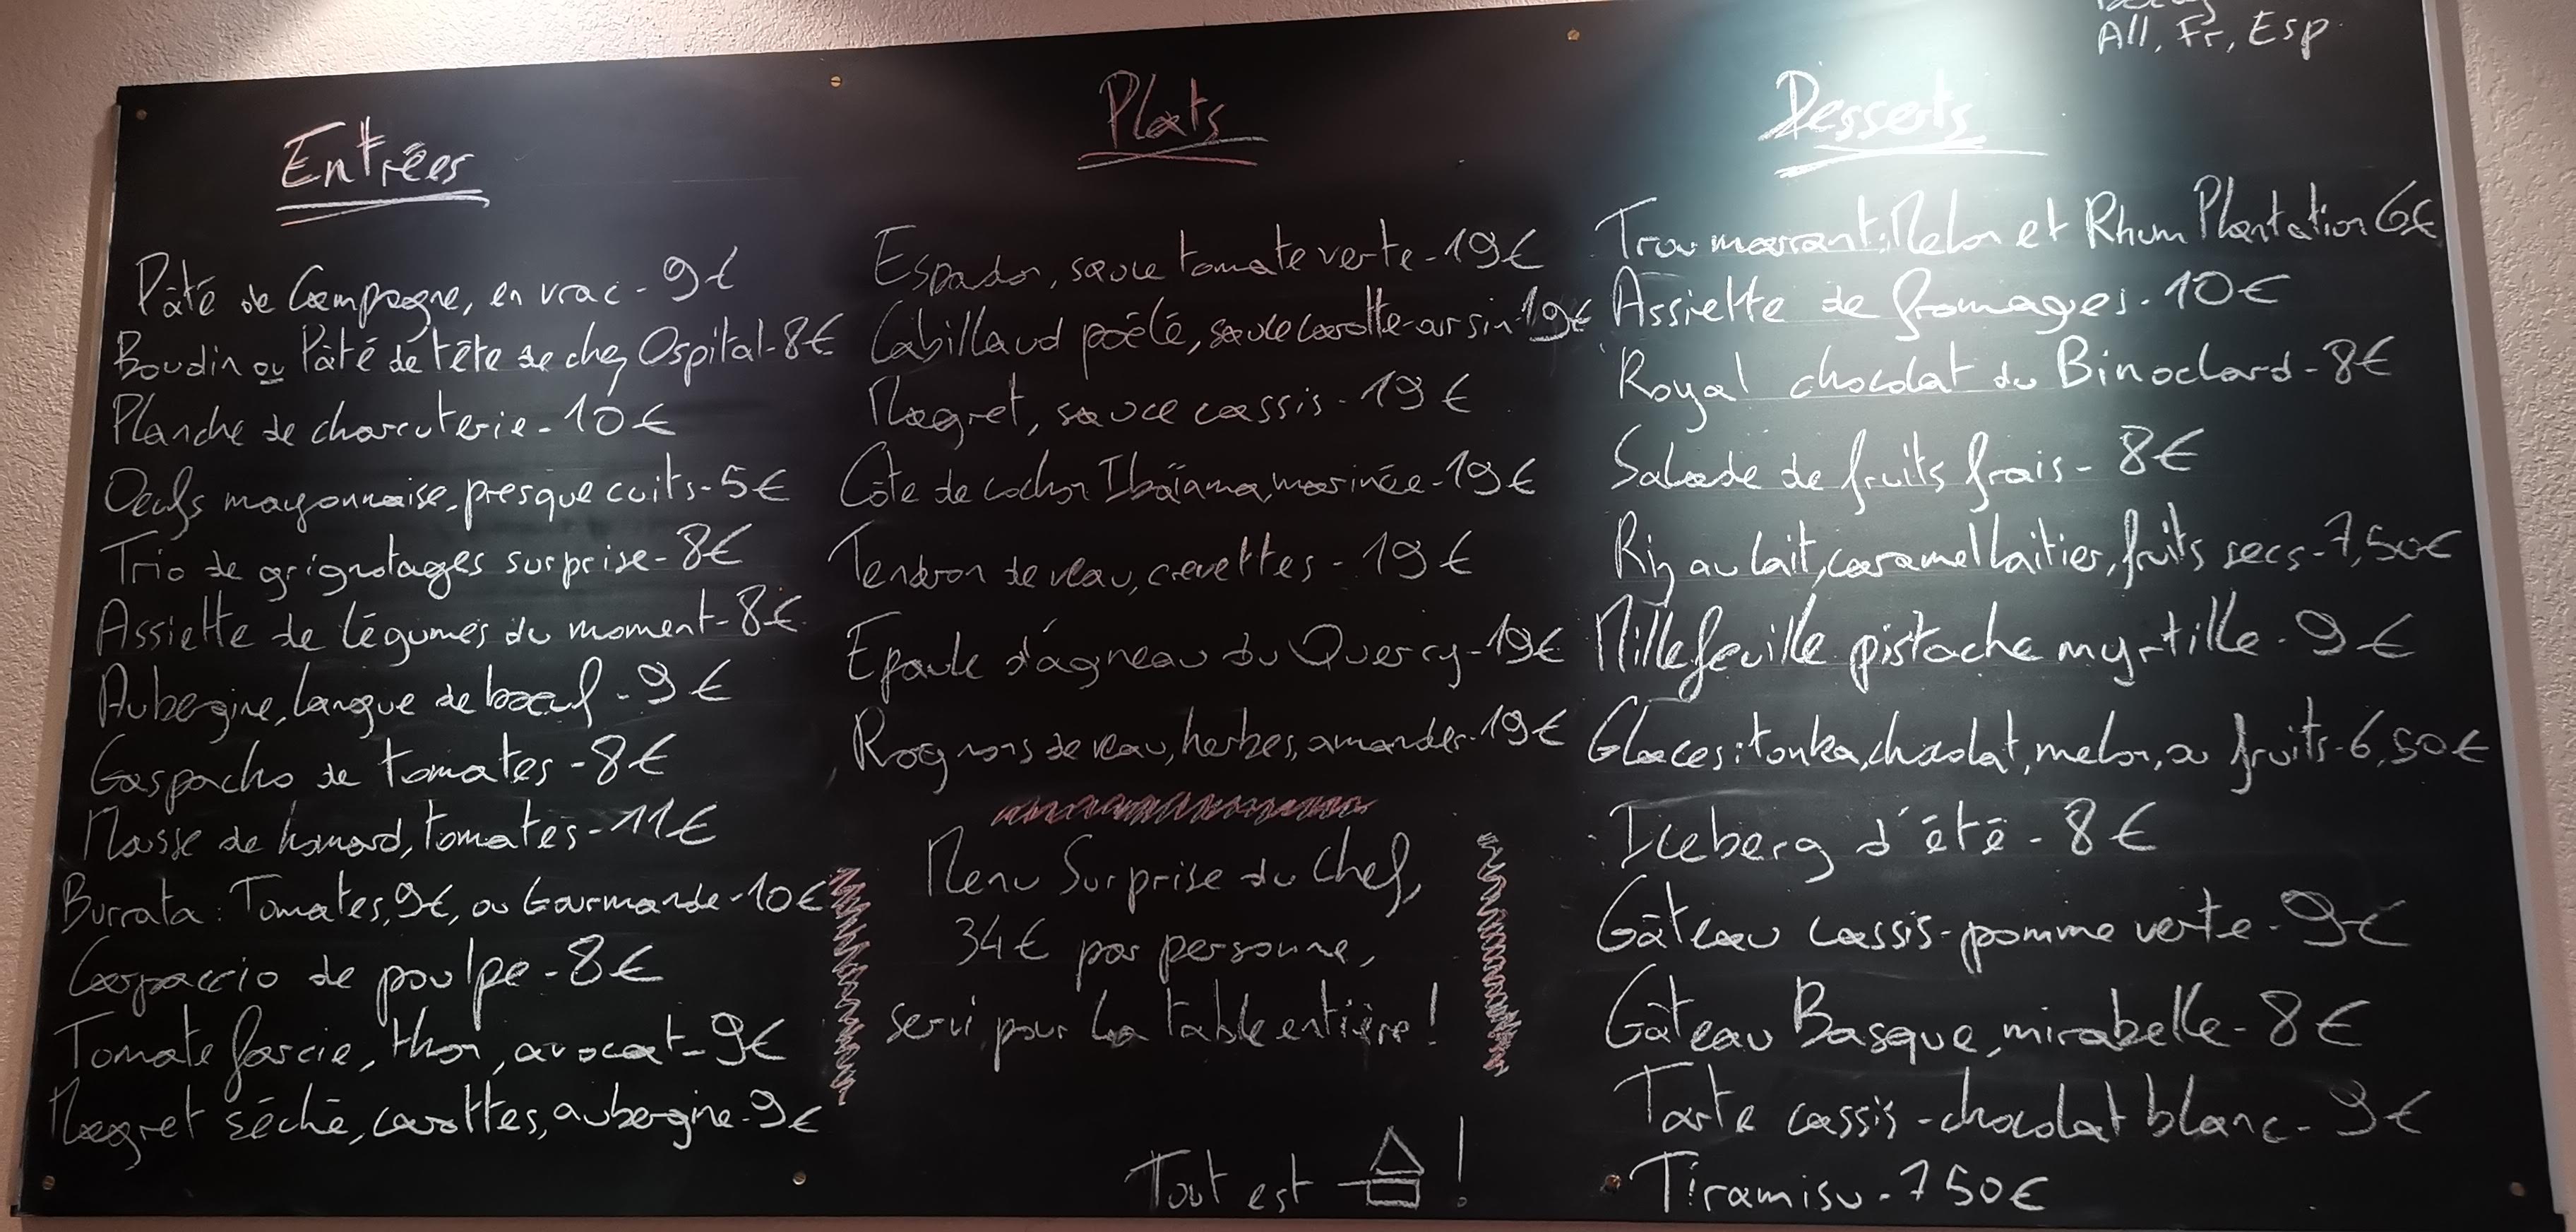 All, Fr, Esp.
Entrées
Pâté de Campagne, en vrac - 9€
Boudin ou Pâté de tête de chez Ospital - 8€
Planche de charcuterie - 10€
Oeufs mayonnaise, presque cuits - 5€
Trio de grignotages surprise - 8€
Assiette de légumes du moment - 8€
Aubergine, langue de boeuf - 9€
Gaspacho de tomates - 8€
Mousse de homard, tomates - 11€
Burrata : Tomates, 9€, ou Gourmande - 10€
Carpaccio de poulpe - 8€
Tomate farcie, thon, avocat - 9€
Magret séché, carottes, aubergine - 9€
Plats
Espadon, sauce tomate verte - 19€
Cabillaud poêlé, sauce carotte-oursin - 19€
Magret, sauce cassis - 19€
Côte de cochon Ibaïama, marinée - 19€
Tendron de veau, crevettes - 19€
Epaule d'agneau du Quercy - 19€
Rognons de veau, herbes, amandes - 19€
Menu Surprise du Chef,
34€ par personne,
servi pour la table entière !
Tout est !
Desserts
Trou marrant : Melon et Rhum Plantation 6€
Assiette de fromages - 10€
Royal chocolat du Binoclard - 8€
Salade de fruits frais - 8€
Riz au lait, caramel laitier, fruits secs - 7,50€
Millefeuille pistache myrtille - 9€
Glaces : tonka, chocolat, melon, ou fruits - 6,50€
Iceberg d'été - 8€
Gâteau cassis-pomme verte - 9€
Gâteau Basque, mirabelle - 8€
Tarte cassis - chocolat blanc - 9€
Tiramisu - 7 50€